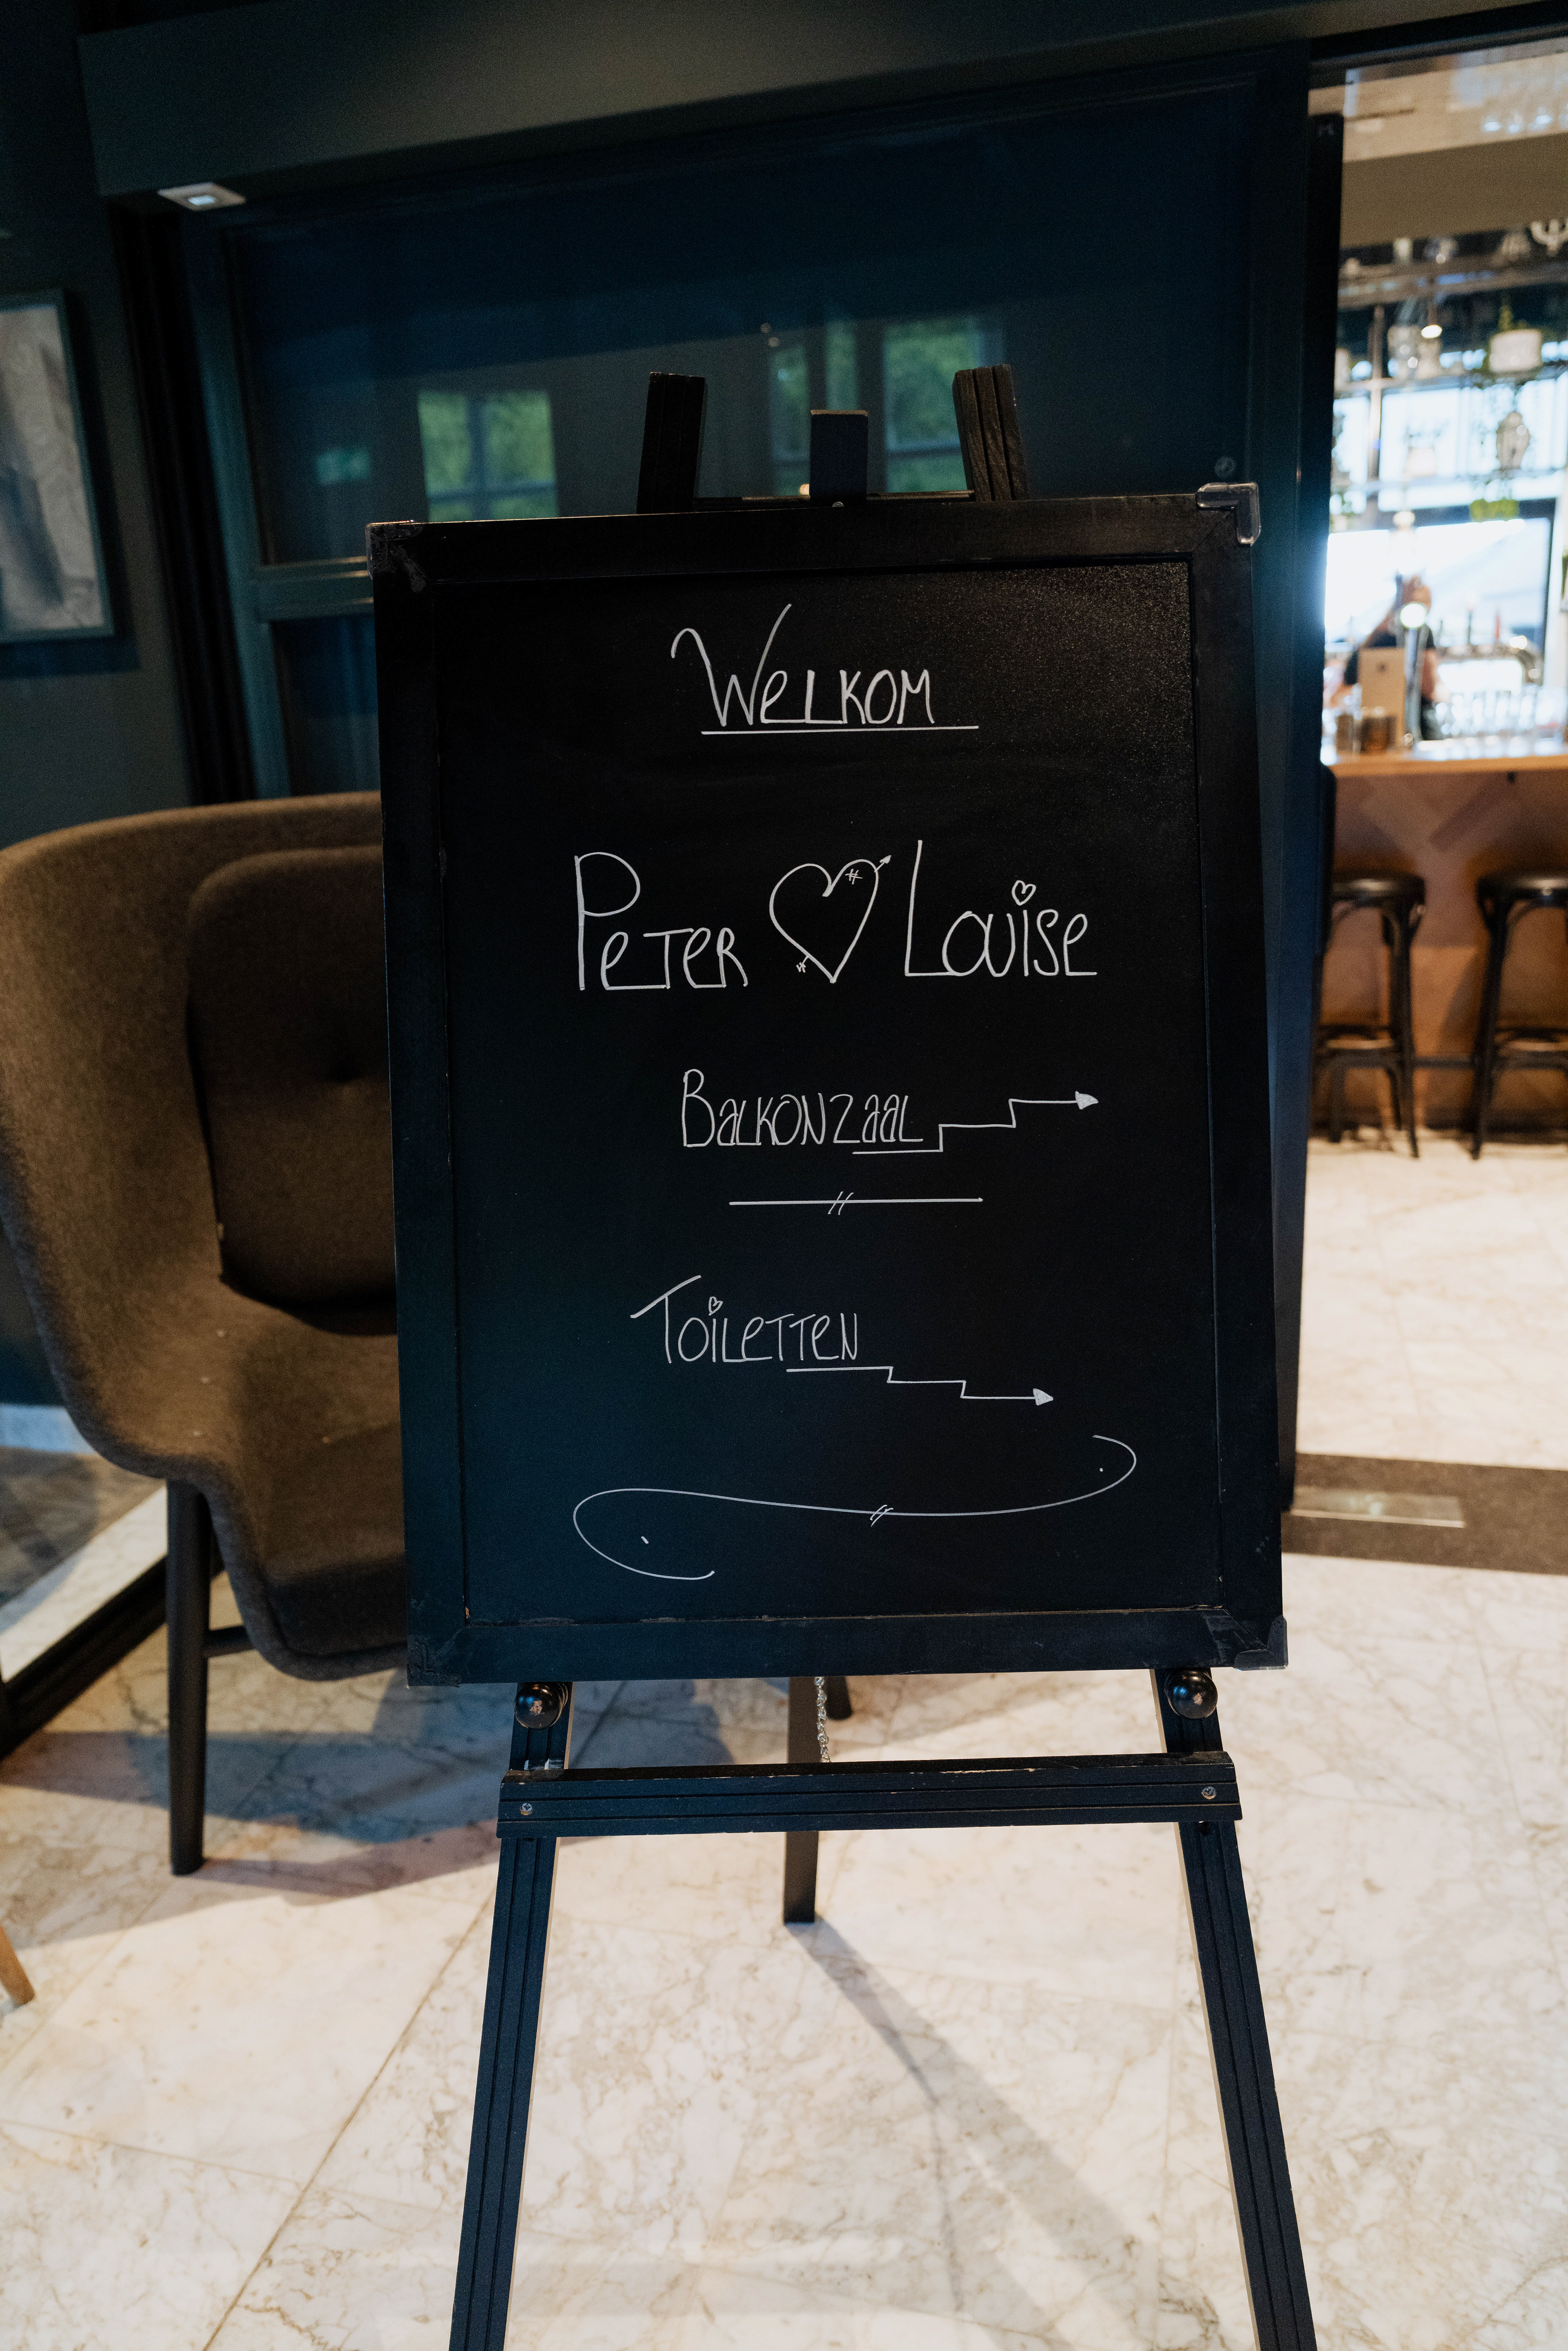 Welkom
Peter Louise
Balkonzaal
Toiletten